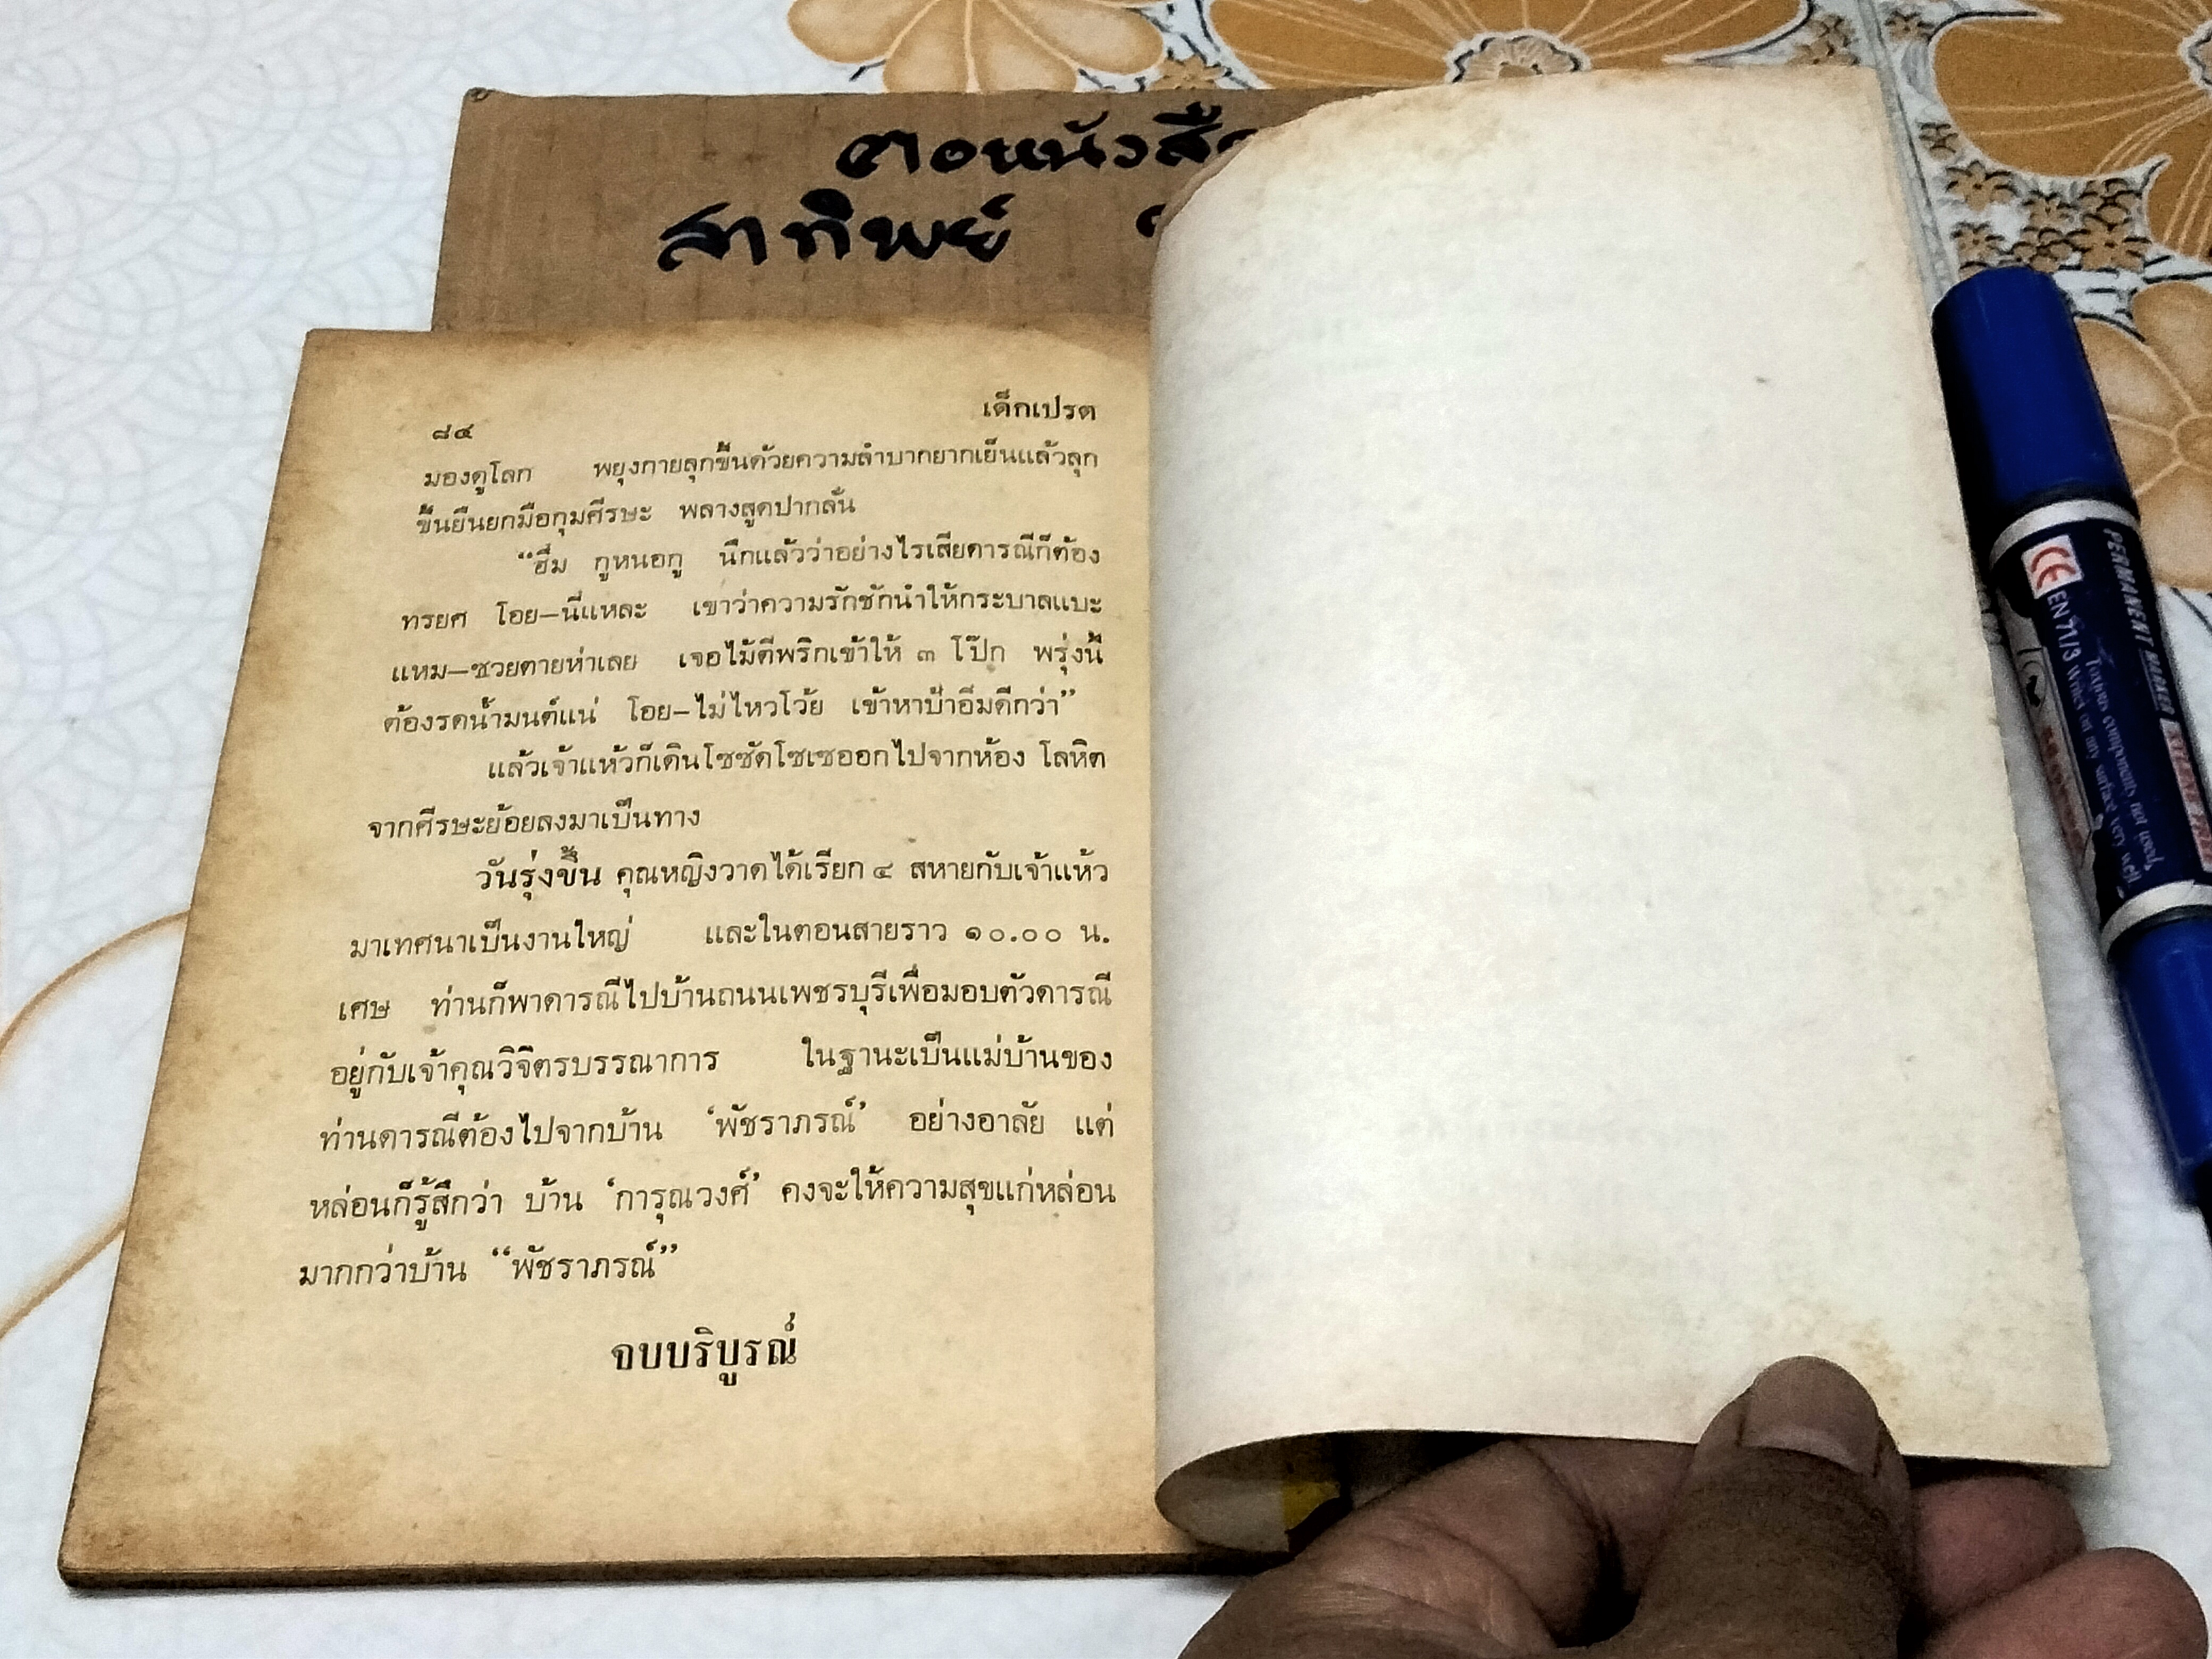 คอหนังสือ
สาทิพย์
๘๔
เด็กเปรต
มองดูโลก พยุงกายลุกขึ้นด้วยความลำบากยากเย็นแล้วลุก
ขึ้นยืนยกมือกุมศีรษะ พลางสูดปากลั่น
“ฮึ่ม กูหนอกู นึกแล้วว่าอย่างไรเสียดารณีก็ต้อง
ทรยศ โอย—นี่แหละ เขาว่าความรักชักนำให้กระบาลแบะ
แหม—ซวยตายห่าเลย เจอไม้ตีพริกเข้าให้ ๓ โป๊ก พรุ่งนี้
ต้องรดน้ำมนต์แน่ โอย—ไม่ไหวโว้ย เข้าหาป้าอิ่มดีกว่า”
แล้วเจ้าแห้วก็เดินโซซัดโซเซออกไปจากห้อง โลหิต
จากศีรษะย้อยลงมาเป็นทาง
วันรุ่งขึ้น คุณหญิงวาดได้เรียก ๔ สหายกับเจ้าแห้ว
มาเทศนาเป็นงานใหญ่ และในตอนสายราว ๑๐.๐๐ น.
เศษ ท่านก็พาดารณีไปบ้านถนนเพชรบุรีเพื่อมอบตัวดารณี
อยู่กับเจ้าคุณวิจิตรบรรณาการ ในฐานะเป็นแม่บ้านของ
ท่านดารณีต้องไปจากบ้าน ‘พัชราภรณ์’ อย่างอาลัย แต่
หล่อนก็รู้สึกว่า บ้าน ‘การุณวงศ์’ คงจะให้ความสุขแก่หล่อน
มากกว่าบ้าน “พัชราภรณ์”
จบบริบูรณ์
PERMANENT MARKER
CE EN 71/3 Writes on any surface very well